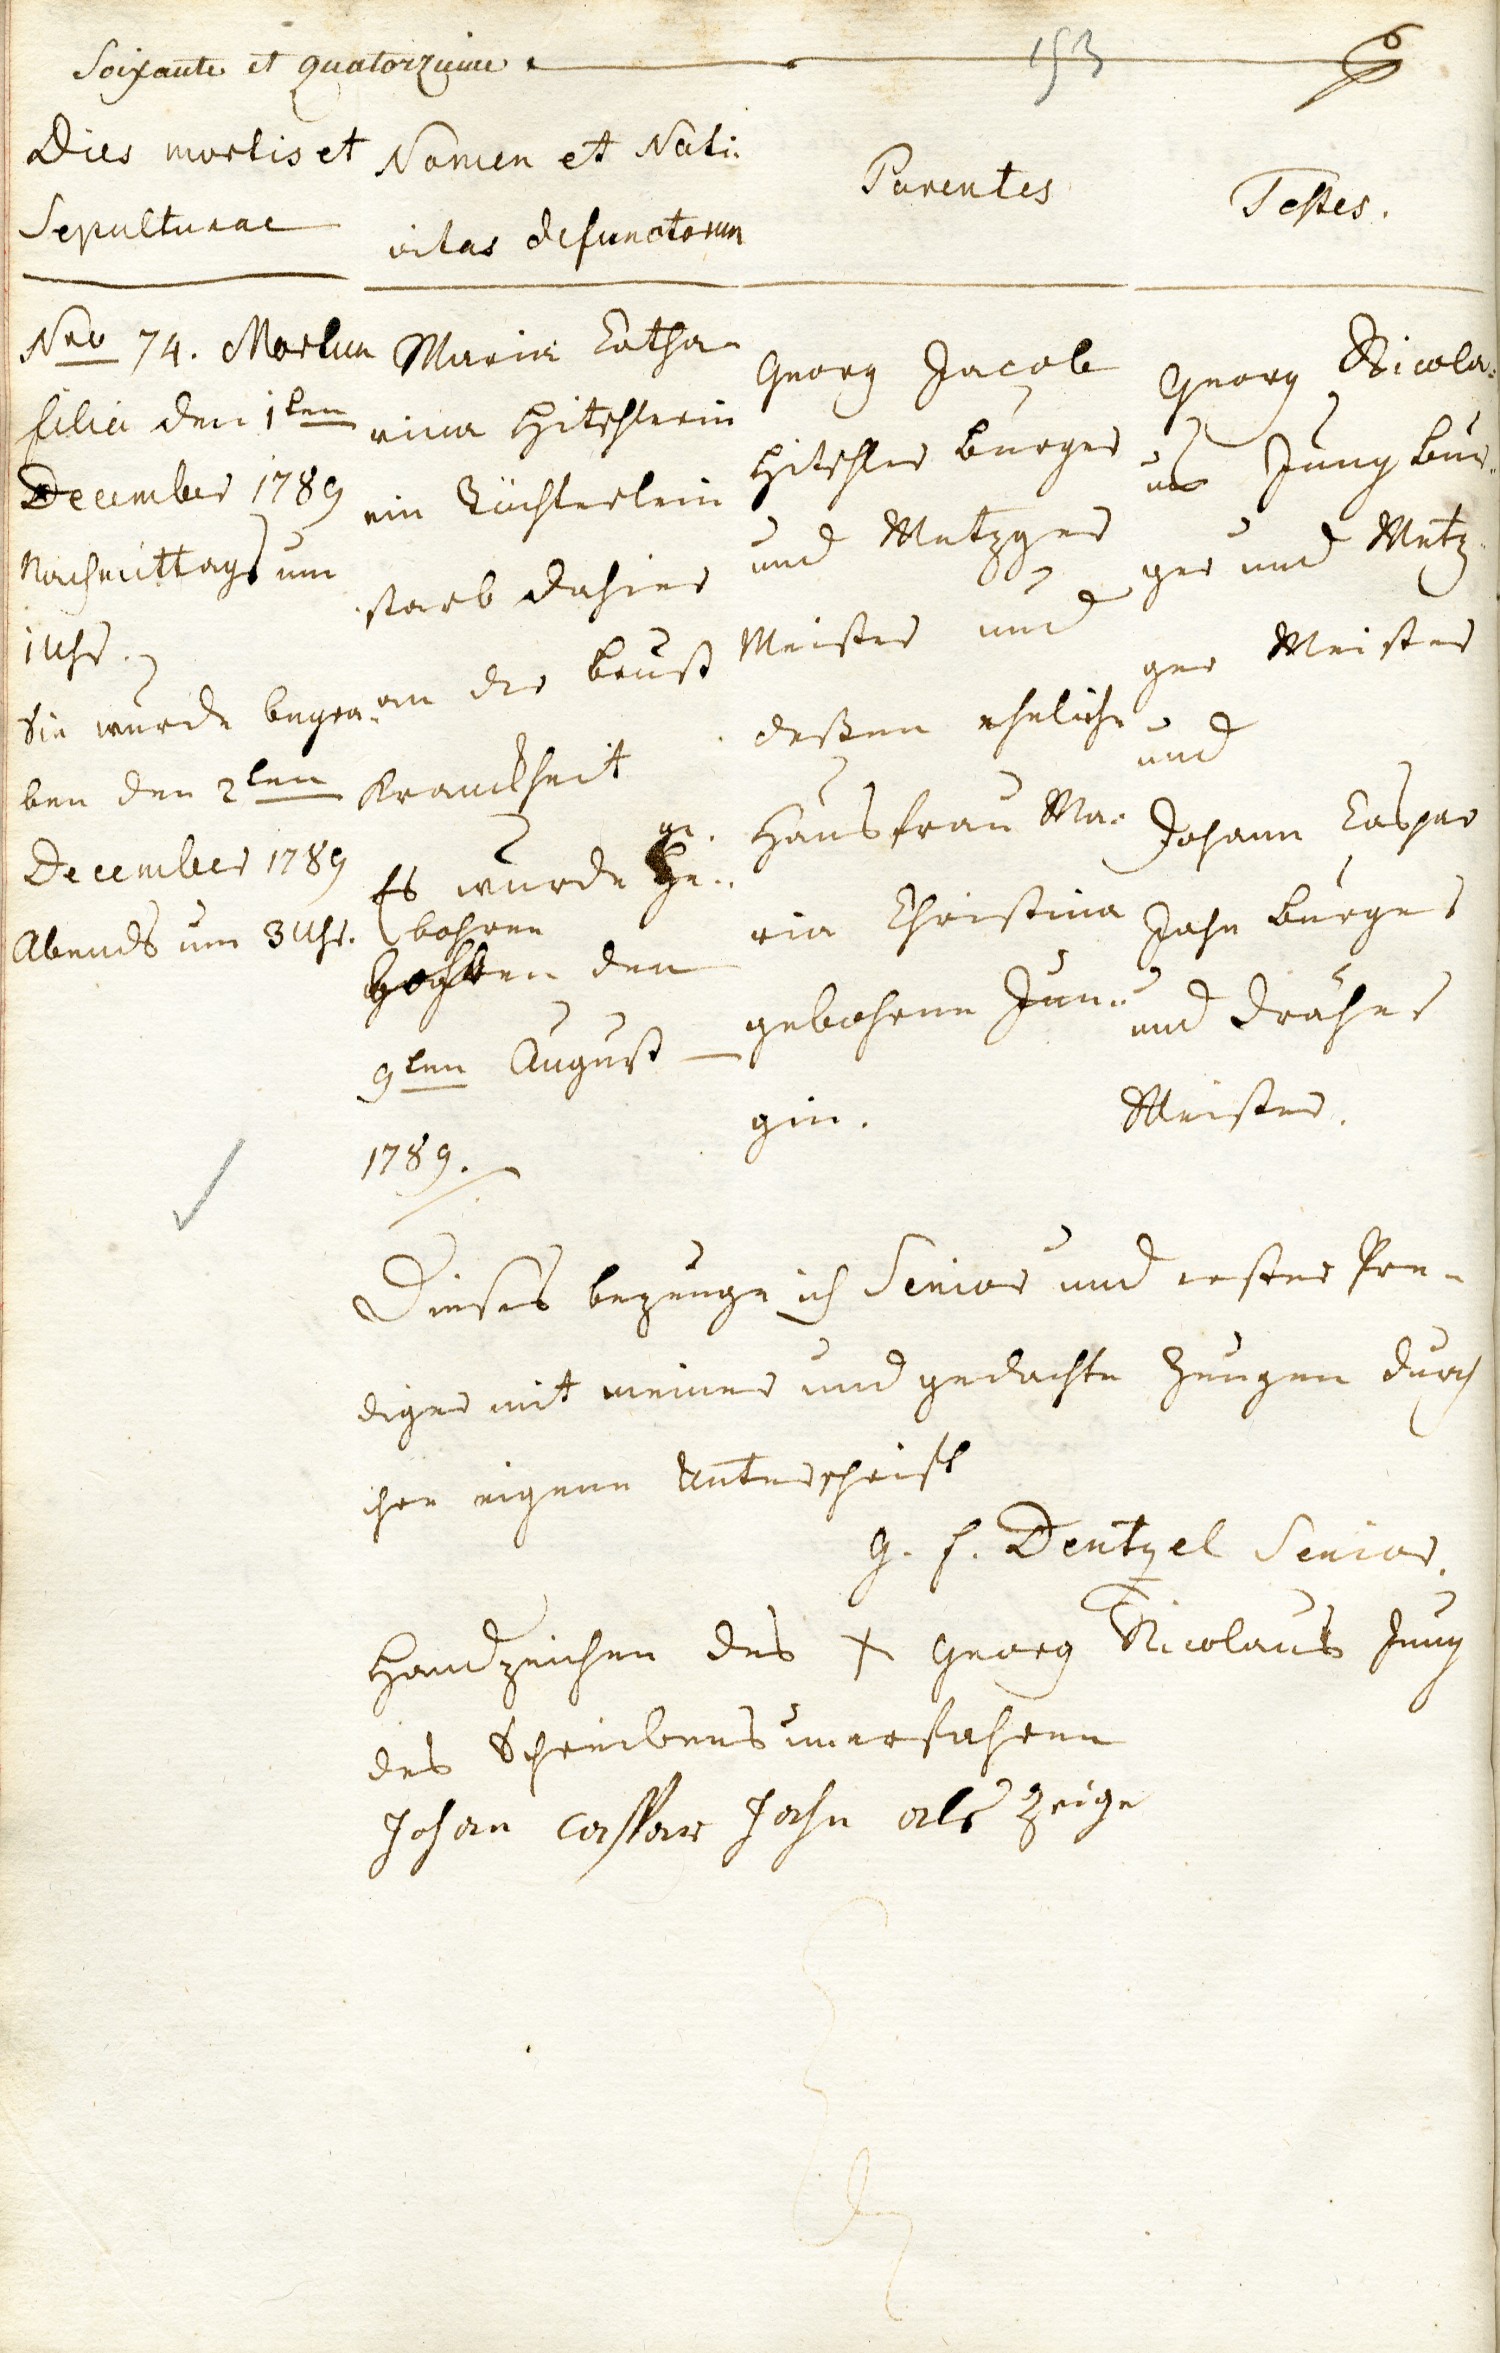 Soixante et quatorzieme
153
Dies mortis et
Sepulturae
Nomen et Nati:
vitas defunctorum
Parentes
Testes.
Nro 74. Mortua
filia den 1ten
December 1789
Nachmittags um
1 Uhr.
Sie wurde begra-
ben den 2ten
December 1789
Abends um 3 Uhr.
Maria Catha-
rina Hitschlerin
ein Töchterlein
starb dahier
an der Brust
Kranckheit
Es wurde ge-
bohren
den
9ten August
1789.
Georg Jacob
Hitschler burger
und Metzger
Meister und
deßen eheliche
Hausfrau Ma-
ria Christina
gebohrne Jun-
gin.
Georg Nicola-
us Jung bur-
ger und Metz-
ger Meister
und
Johann Caspar
Jahn burger
und Dräher
Meister.
Dieses bezeuge ich Senior und erster Pre-
diger mit meiner und gedachte Zeugen durch
ihre eigene Unterschrift
G. F. Dentzel Senior.
Handzeichen des + Georg Nicolaus Jung
des Schreibens unerfahren
Johan Casspar Jahn als Zeige